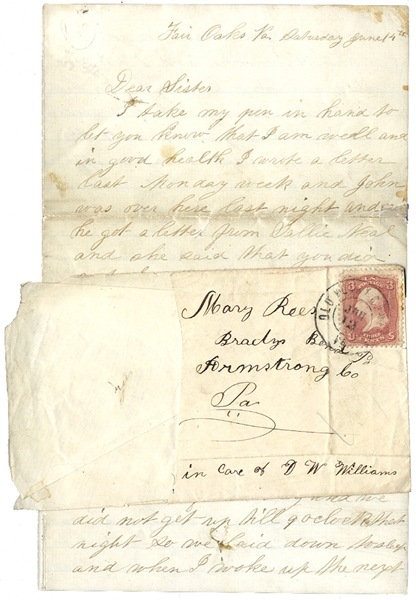 Fair Oaks Va. Saturday June 14th
Dear Sister
I take my pen in hand to
let you know that I am well and
in good health I write a letter
last Monday week and John
was over here last night and
he got a letter from Sallie Neal
and she said that you did
Mary Rees
Bradys Bend
Armstrong Co
Pa
in care of D W Williams
OLD
JUN
12
3 3
we
did not get up till 9 oclock that
night so we laid down to sleep
and when I woke up the next